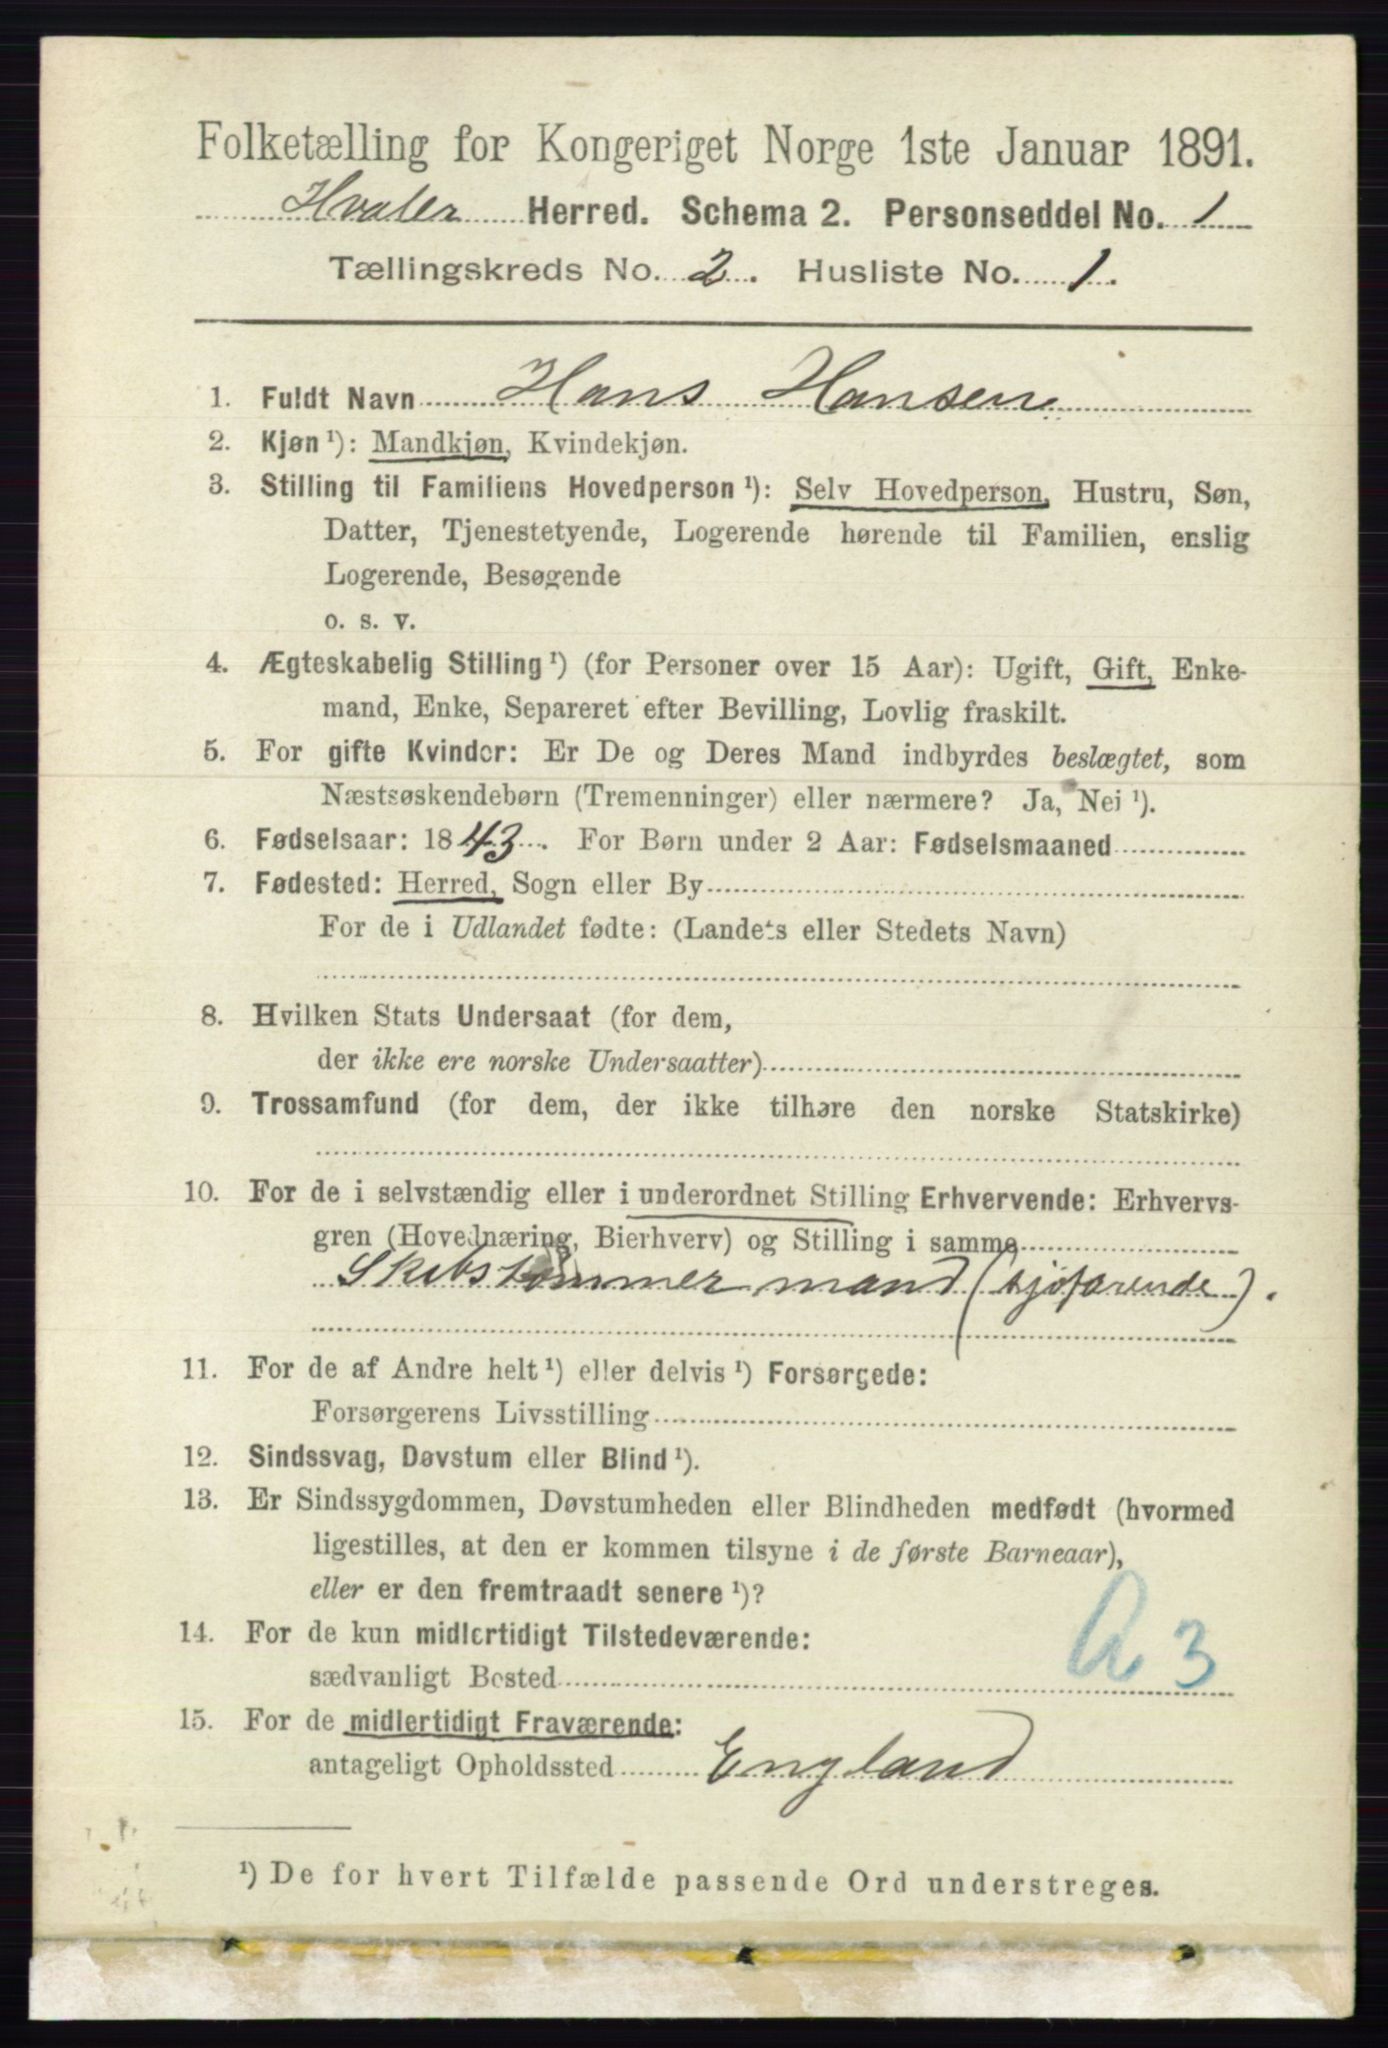 Folketælling for Kongeriget Norge 1ste Januar 1891.
Hvaler Herred. Schema 2. Personseddel No. 1
Tællingskreds No. 2. Husliste No. 1.
1. Fuldt Navn Hans Hansen
2. Kjøn ¹): Mandkjøn, Kvindekjøn.
3. Stilling til Familiens Hovedperson ¹): Selv Hovedperson, Hustru, Søn,
Datter, Tjenestetyende, Logerende hørende til Familien, enslig
Logerende, Besøgende
o. s. v.
4. Ægteskabelig Stilling ¹) (for Personer over 15 Aar): Ugift, Gift, Enke-
mand, Enke, Separeret efter Bevilling, Lovlig fraskilt.
5. For gifte Kvinder: Er De og Deres Mand indbyrdes beslægtet, som
Næstsøskendebørn (Tremenninger) eller nærmere? Ja, Nei ¹).
6. Fødselsaar: 1843. For Børn under 2 Aar: Fødselsmaaned
7. Fødested: Herred, Sogn eller By
For de i Udlandet fødte: (Landets eller Stedets Navn)
8. Hvilken Stats Undersaat (for dem,
der ikke ere norske Undersaatter)
9. Trossamfund (for dem, der ikke tilhøre den norske Statskirke)
10. For de i selvstændig eller i underordnet Stilling Erhvervende: Erhvervs-
gren (Hovednæring, Bierhverv) og Stilling i samme
Skibstømmermand (sjøfarende).
11. For de af Andre helt ¹) eller delvis ¹) Forsørgede:
Forsørgerens Livsstilling
12. Sindssvag, Døvstum eller Blind ¹).
13. Er Sindssygdommen, Døvstumheden eller Blindheden medfødt (hvormed
ligestilles, at den er kommen tilsyne i de første Barneaar),
eller er den fremtraadt senere ¹)?
14. For de kun midlertidigt Tilstedeværende:
sædvanligt Bosted
15. For de midlertidigt Fraværende:
antageligt Opholdssted England
¹) De for hvert Tilfælde passende Ord understreges.